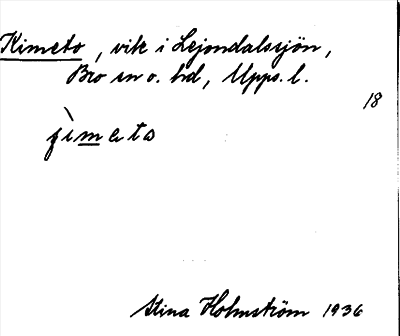 Kimeto, vik i Lejondalssjön,
Bro sn o. hd, Upps. l.
18
ʃìmeto
Stina Holmström 1936